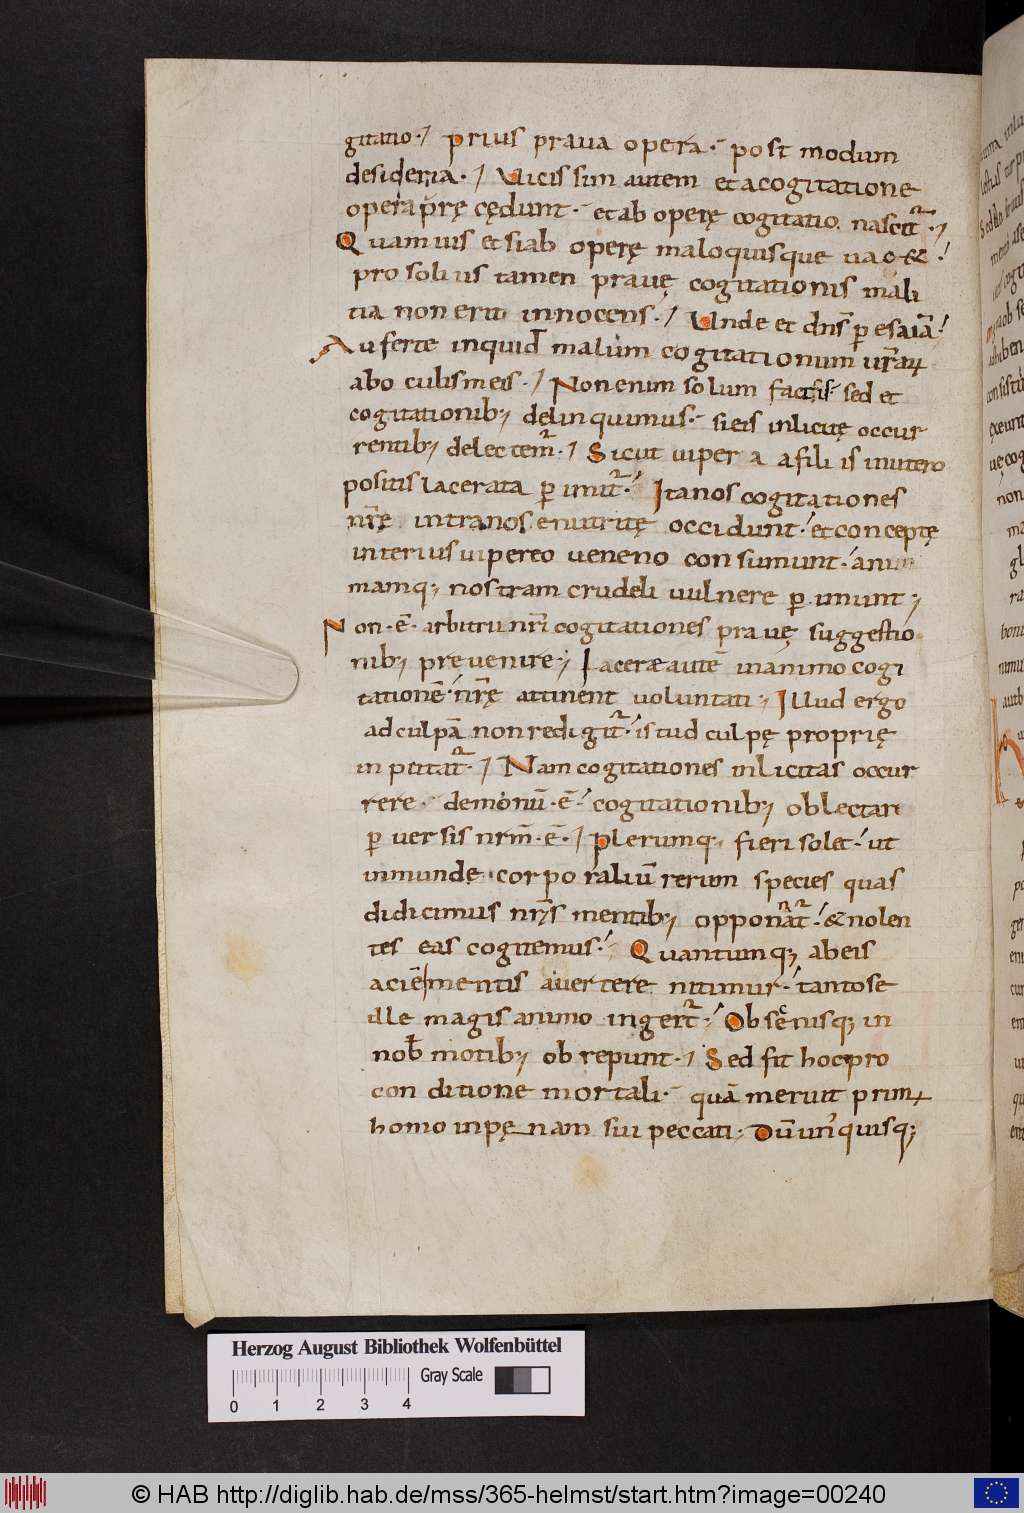 gitatio·/ prius praua opera·´ post modum
desideria·/ Uicis sim autem et a cogitatione
opera prę cędunt·´ et ab operę cogitatio nascit᷑·/
Quamuis et si ab operę malo quisque uac&·!
pro solius tamen pravę cogitationis mali
tia non erit innocens·/ Unde et dn̄s ꝑ esaiā·!
Auferte inquid malum cogitationum ur̄aꝝ
ab oculis meis·/ Non enim solum factis·´ sed et
cogitationib; delinquimus·´ si eis inlicitę occur
rentib; delectem᷑·/ Sicut uipera a filiis in utero
positis lacerata ꝑimit᷑·´ Ita nos cogitationes
nr̄ę intra nos enutritę occidunt·´ et conceptę
interius uipereo ueneno consumunt·´ anim
mamq; nostram crudeli uulnere ꝑimunt;
Non·ē·arbitrii nr̄i cogitationes pravę suggestio
nib; prevenire; Iacere autē in animo cogi
tationē·´ nr̄ę attinent uoluntati; Illud ergo
ad culpā non redigit᷑·´ istud culpę proprię
inputat᷑·/ Nam cogitationes inlicitas occur
rere·´ demonū·ē·´ cogitationib; oblectare
ꝑuersis nrm̄·ē·/ plerumq; fieri solet·´ ut
inmundę corporaliū rerum species quas
didicimus nr̄is mentib; opponant᷑·! & nolen
tes eas cogitemus·´ Quantumq; ab eis
aciē mentis auertere nitimur·´ tanto se
ille magis animo ingerit᷑·´ Obscenisq; in
nob̄ motib; obrepunt·/ Sed fit hoc pro
conditione mortali·´ quā meruit prim
homo in pęnam sui peccati; Dū un'quisq;
Herzog August Bibliothek Wolfenbüttel
Gray Scale
0 1 2 3 4
© HAB http://diglib.hab.de/mss/365-helmst/start.htm?image=00240